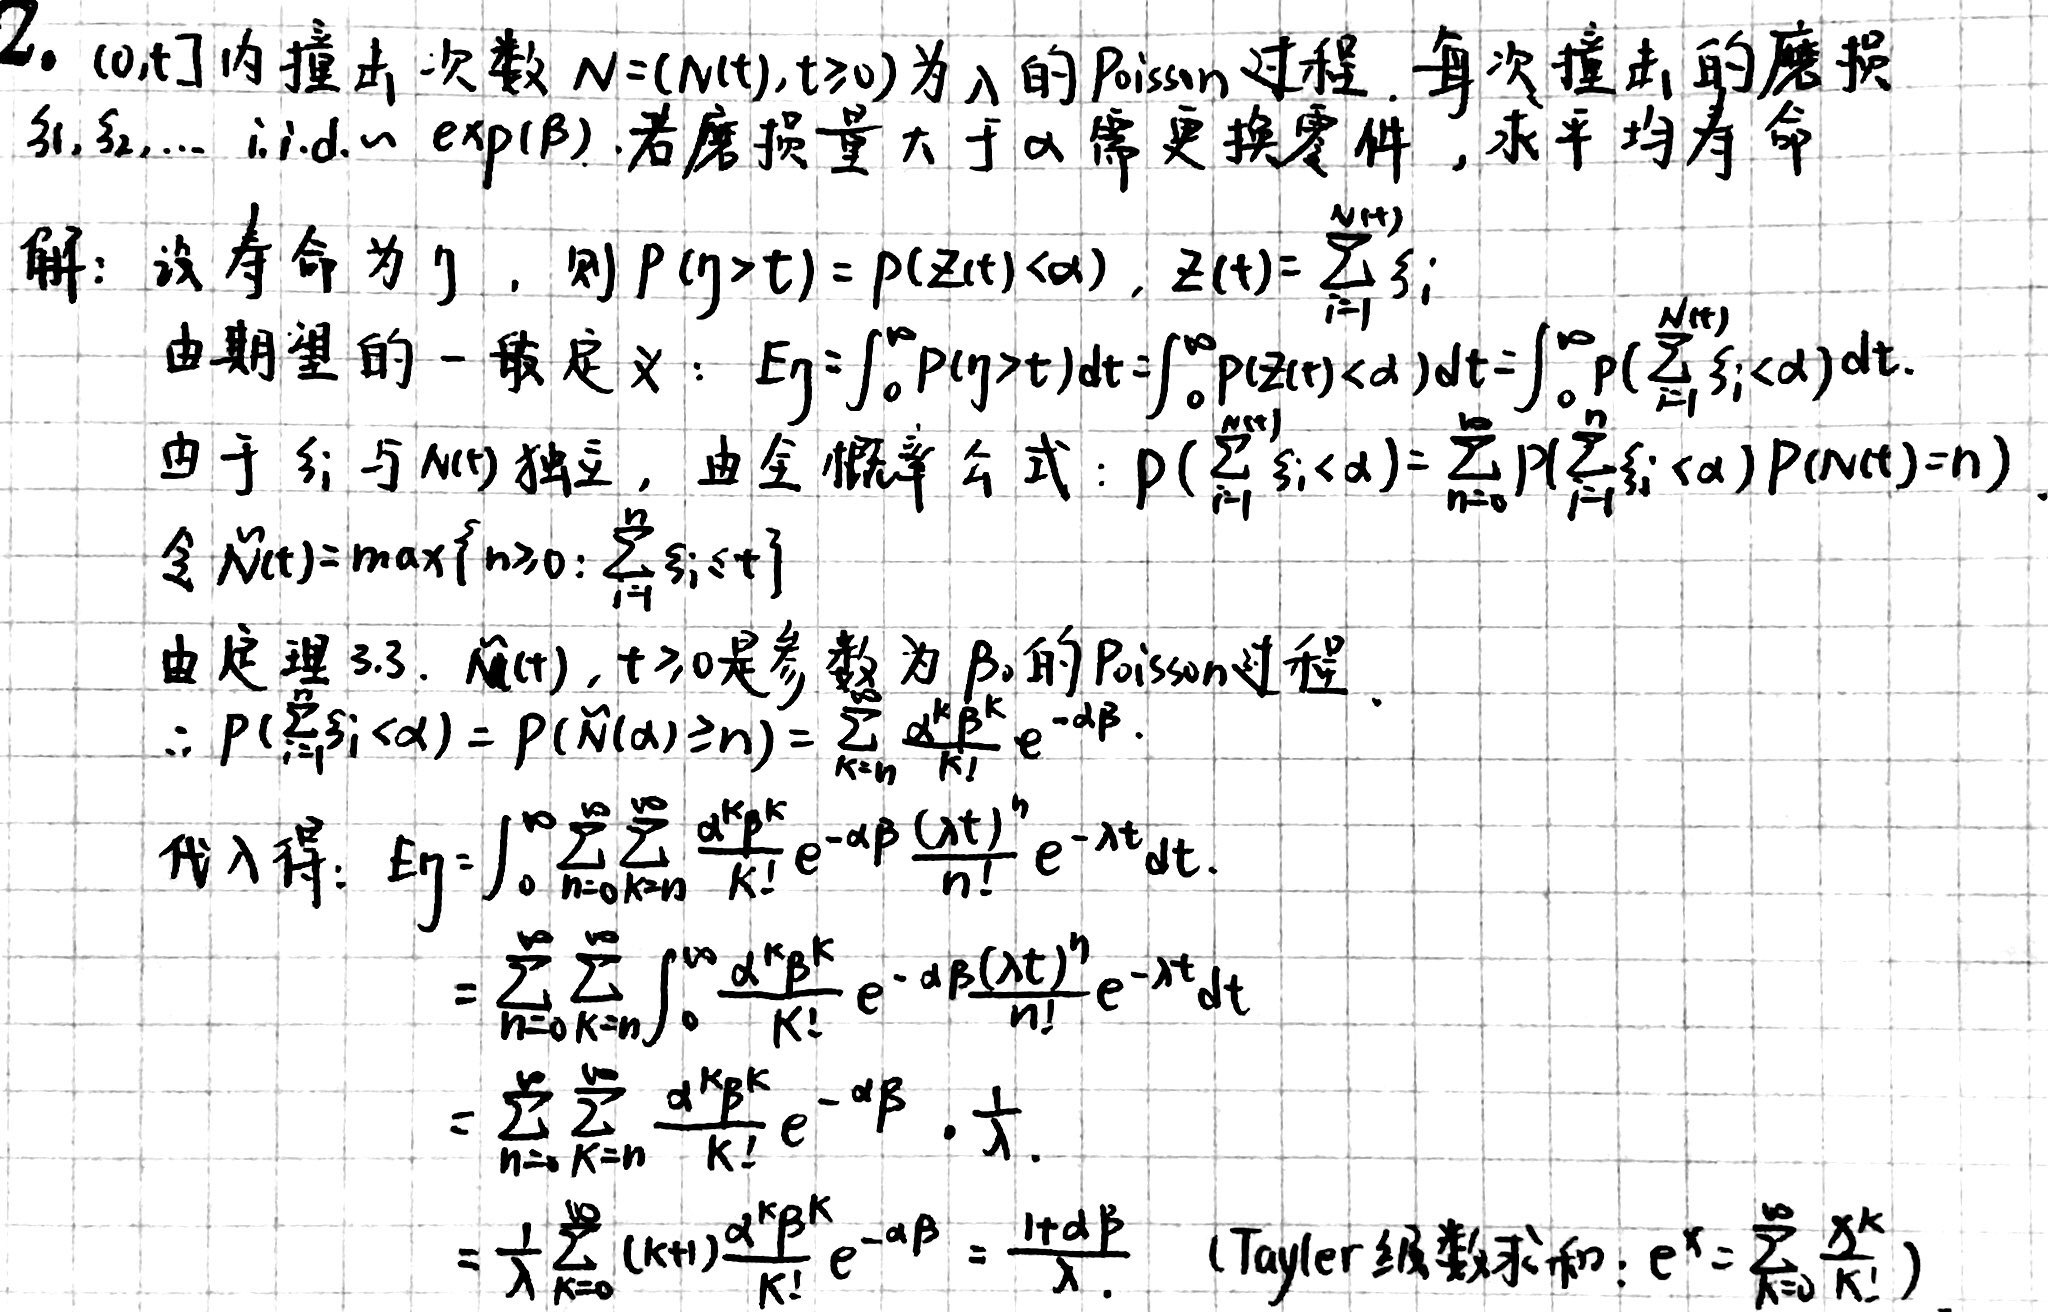 2. (0,t]内撞击次数 N=(N(t),t≥0)为λ的Poisson过程.每次撞击的磨损
ξ1,ξ2,... i.i.d.~ exp(β).若磨损量大于α需更换零件,求平均寿命
解: 设寿命为η,则P(η>t)=P(Z(t)<α), Z(t)=∑_{i=1}^{N(t)} ξi
由期望的一般定义: Eη=∫_0^∞ P(η>t)dt=∫_0^∞ P(Z(t)<α)dt=∫_0^∞ P(∑_{i=1}^{N(t)} ξi<α)dt.
由于ξi与N(t)独立,由全概率公式:P(∑_{i=1}^{N(t)} ξi<α)=∑_{n=0}^∞ P(∑_{i=1}^n ξi<α)P(N(t)=n).
令Ñ(t)=max{n≥0:∑_{i=1}^n ξi≤t}
由定理3.3. Ñ(t),t≥0是参数为β的Poisson过程.
∴ P(∑_{i=1}^n ξi<α)=P(Ñ(α)≥n)=∑_{k=n}^∞ α^kβ^k/k! e^{-αβ}.
代入得: Eη=∫_0^∞ ∑_{n=0}^∞ ∑_{k=n}^∞ α^kβ^k/k! e^{-αβ} (λt)^n/n! e^{-λt}dt.
=∑_{n=0}^∞ ∑_{k=n}^∞ ∫_0^∞ α^kβ^k/k! e^{-αβ} (λt)^n/n! e^{-λt}dt
=∑_{n=0}^∞ ∑_{k=n}^∞ α^kβ^k/k! e^{-αβ}·1/λ.
=1/λ ∑_{k=0}^∞ (k+1) α^kβ^k/k! e^{-αβ} = (1+αβ)/λ. (Tayler级数求和: e^x=∑_{k=0}^∞ x^k/k!)